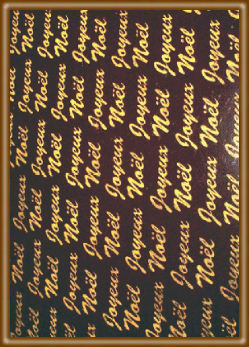 Joyeux
Noël
Joyeux
Noël
Joyeux
Noël
Joyeux
Noël
Joyeux
Noël
Joyeux
Noël
Joyeux
Noël
Joyeux
Noël
Joyeux
Noël
Joyeux
Noël
Joyeux
Noël
Joyeux
Noël
Joyeux
Noël
Joyeux
Noël
Joyeux
Noël
Joyeux
Noël
Joyeux
Noël
Joyeux
Noël
Joyeux
Noël
Joyeux
Noël